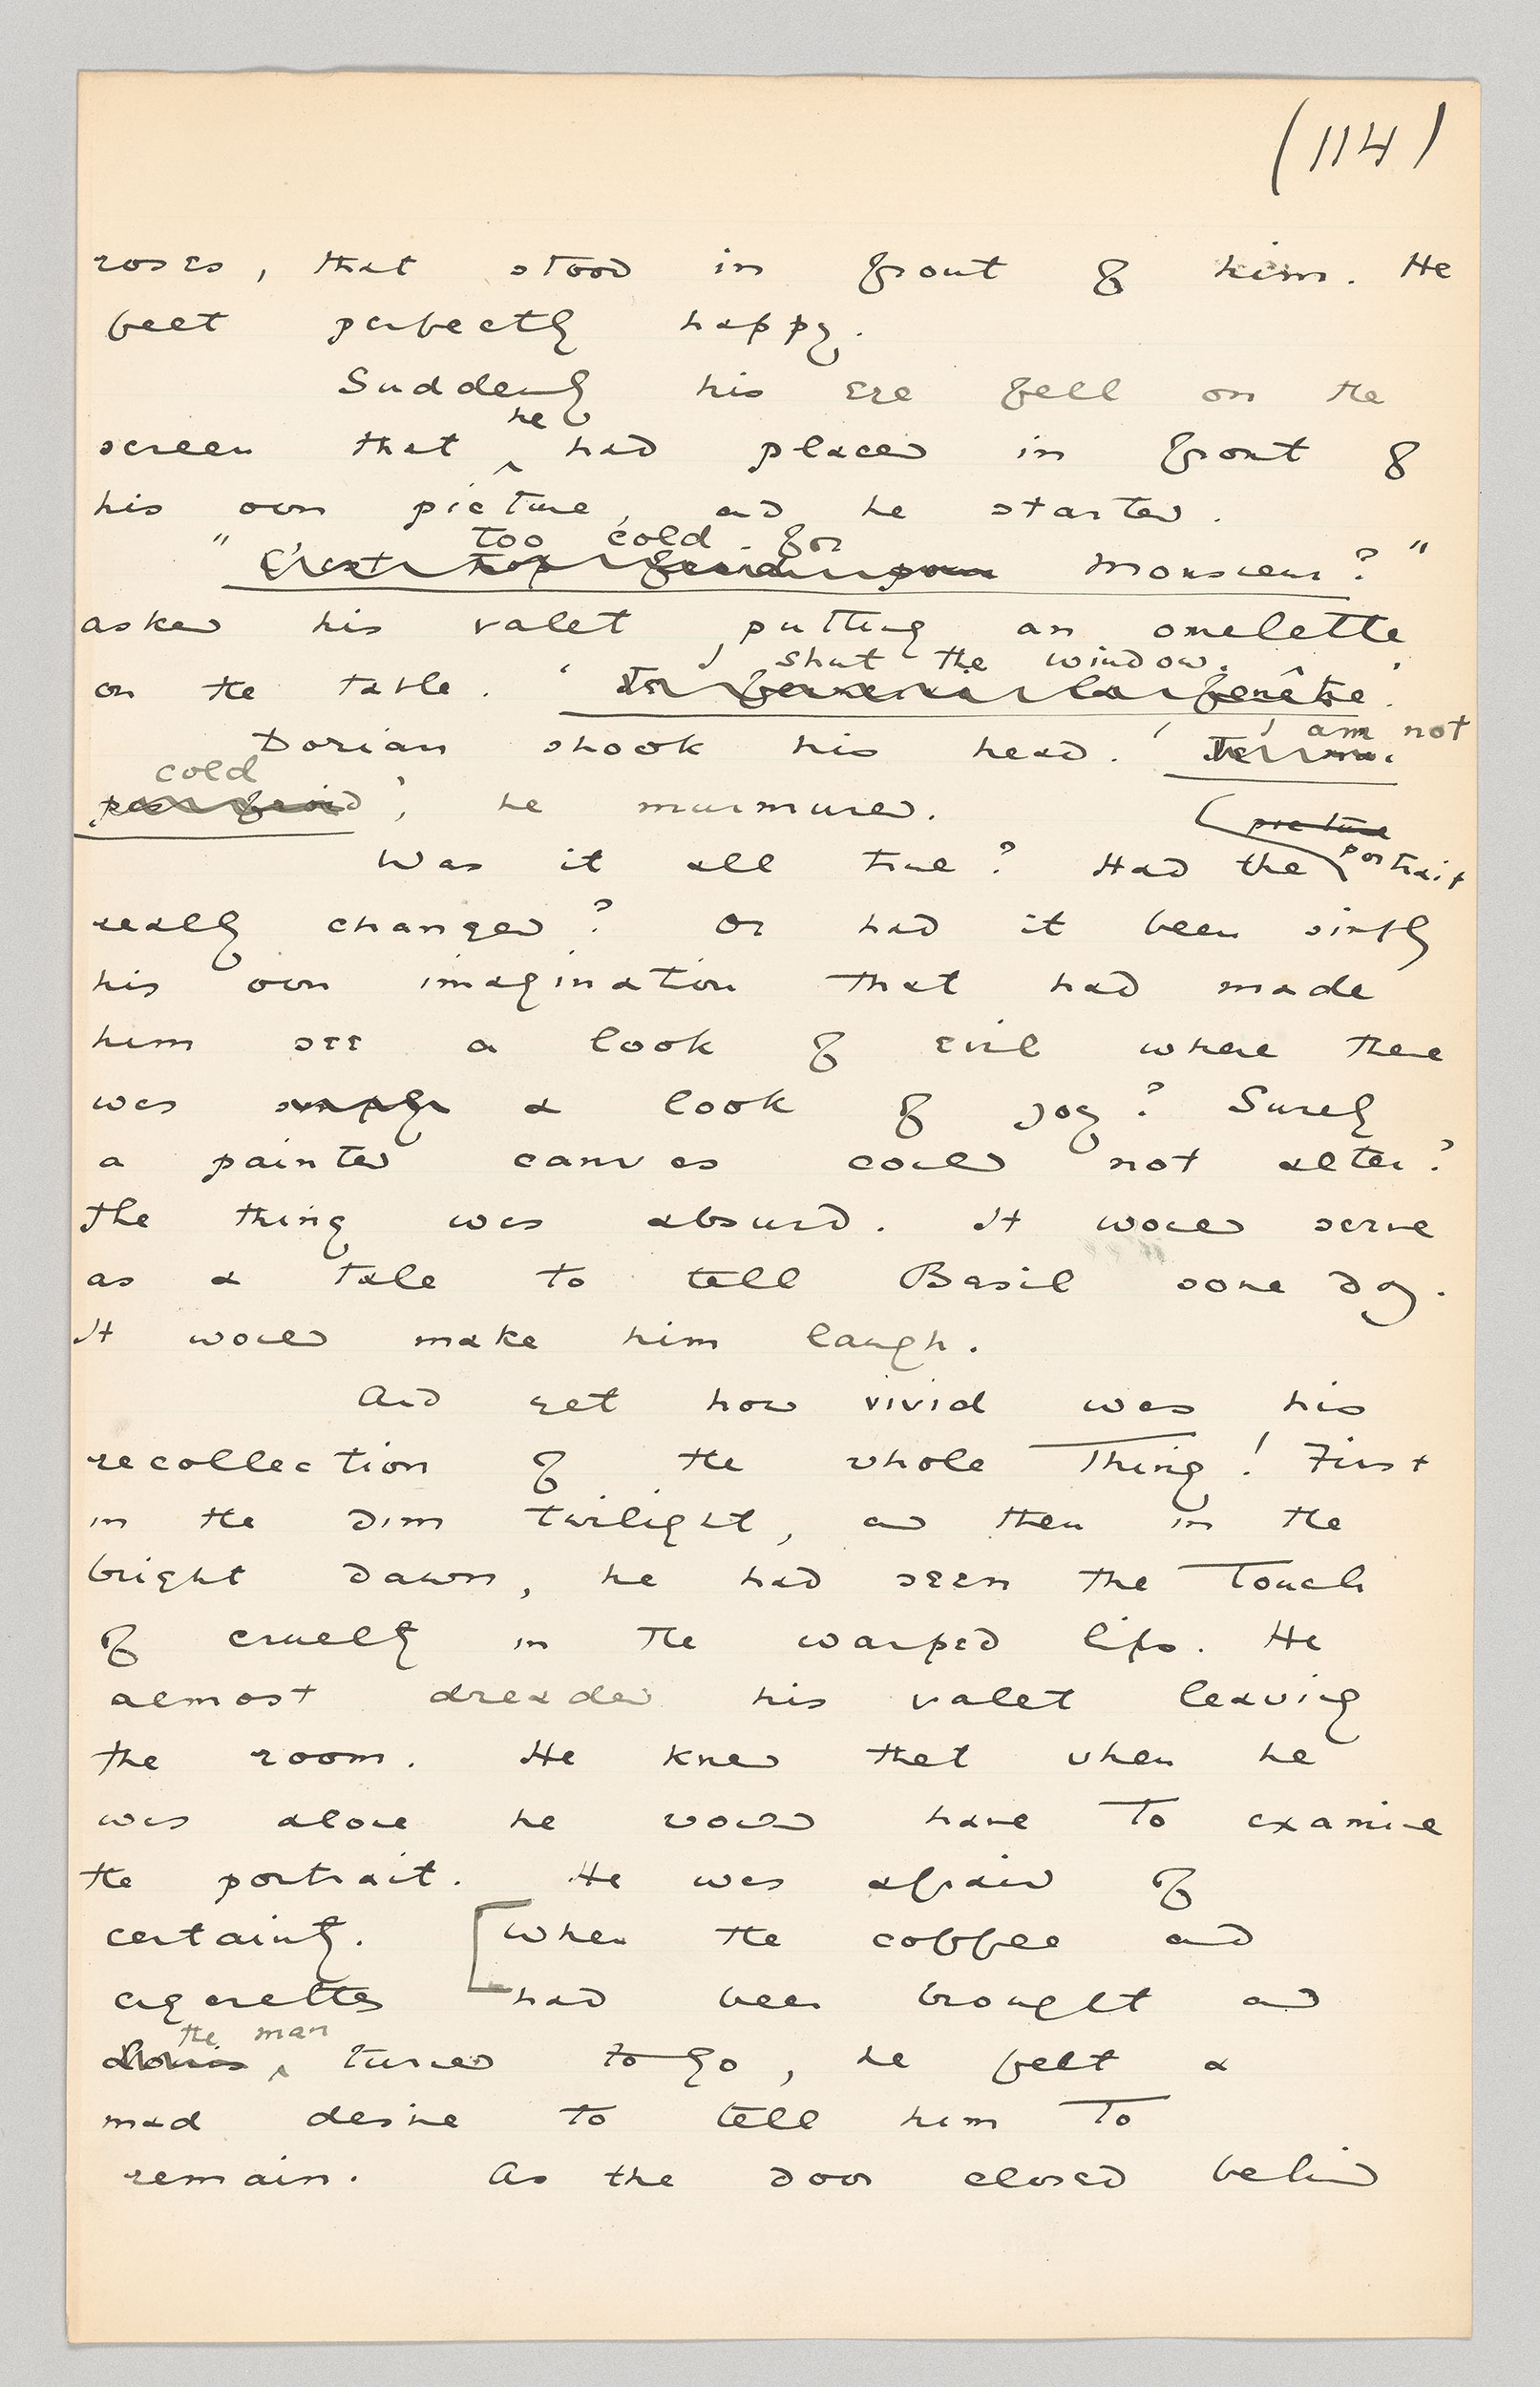 (114)
roses, that stood in front of him. He
felt perfectly happy.
Suddenly his eye fell on the
screen that he had placed in front of
his own picture, and he started.
too cold for
"C'est trop froid pour Monsieur?"
asked his valet, putting an omelette
I shut the window.
on the table. 'Je fermerai la fenêtre.'
Dorian shook his head. 'I am not
cold
pas froid', he murmured.
picture
Was it all true? Had the portrait
really changed? Or had it been simply
his own imagination that had made
him see a look of evil where there
was simply a look of joy? Surely
a painted canvas could not alter?
The thing was absurd. It would serve
as a tale to tell Basil some day.
It would make him laugh.
And yet how vivid was his
recollection of the whole thing! First
in the dim twilight, and then in the
bright dawn, he had seen the touch
of cruelty in the warped lips. He
almost dreaded his valet leaving
the room. He knew that when he
was alone he would have to examine
the portrait. He was afraid of
certainty. [When the coffee and
cigarettes had been brought and
the man
turned to go, he felt a
mad desire to tell him to
remain. As the door closed behind